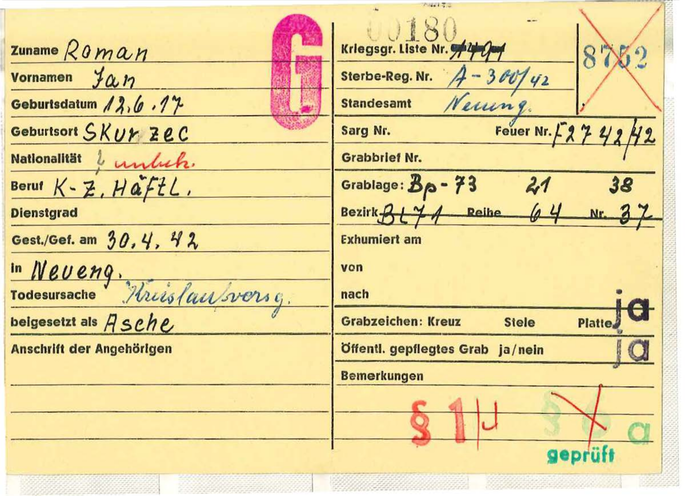 00180
G
Zuname Roman
Vornamen Jan
Geburtsdatum 12.6.17
Geburtsort Skurzec
Nationalität ? unbek.
Beruf K-Z. Häftl.
Dienstgrad
Gest./Gef. am 30.4.42
in Neueng.
Todesursache Kreislaufversg.
beigesetzt als Asche
Anschrift der Angehörigen
Kriegsgr. Liste Nr. 1491
8752
Sterbe-Reg. Nr. A-300/42
Standesamt Neueng.
Sarg Nr. Feuer Nr. F2742/42
Grabbrief Nr.
Grablage: Bp-73 21 38
Bezirk BL71 Reihe 64 Nr. 37
Exhumiert am
von
nach
Grabzeichen: Kreuz Stele Platte ja
Öffentl. gepflegtes Grab ja/nein ja
Bemerkungen
§ 1
a
geprüft